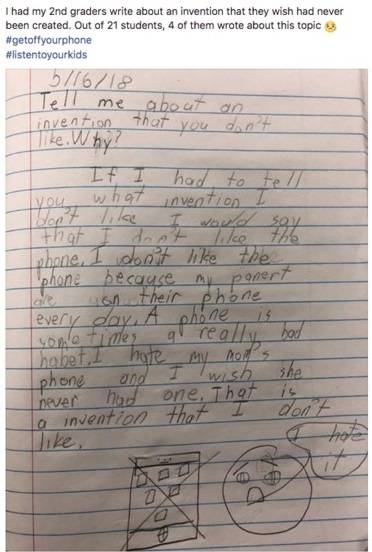 I had my 2nd graders write about an invention that they wish had never
been created. Out of 21 students, 4 of them wrote about this topic 😢
#getoffyourphone
#listentoyourkids
5/16/18
Tell me about an
invention that you don't
like. Why?
If I had to tell
you what invention I
don't like I would say
that I don't like the
phone. I don't like the
phone because my panert
are on their phone
every day. A phone is
sometimes a really bad
habet. I hate my mom's
phone and I wish she
never had one. That is
a invention that I don't
like.
I hate
it